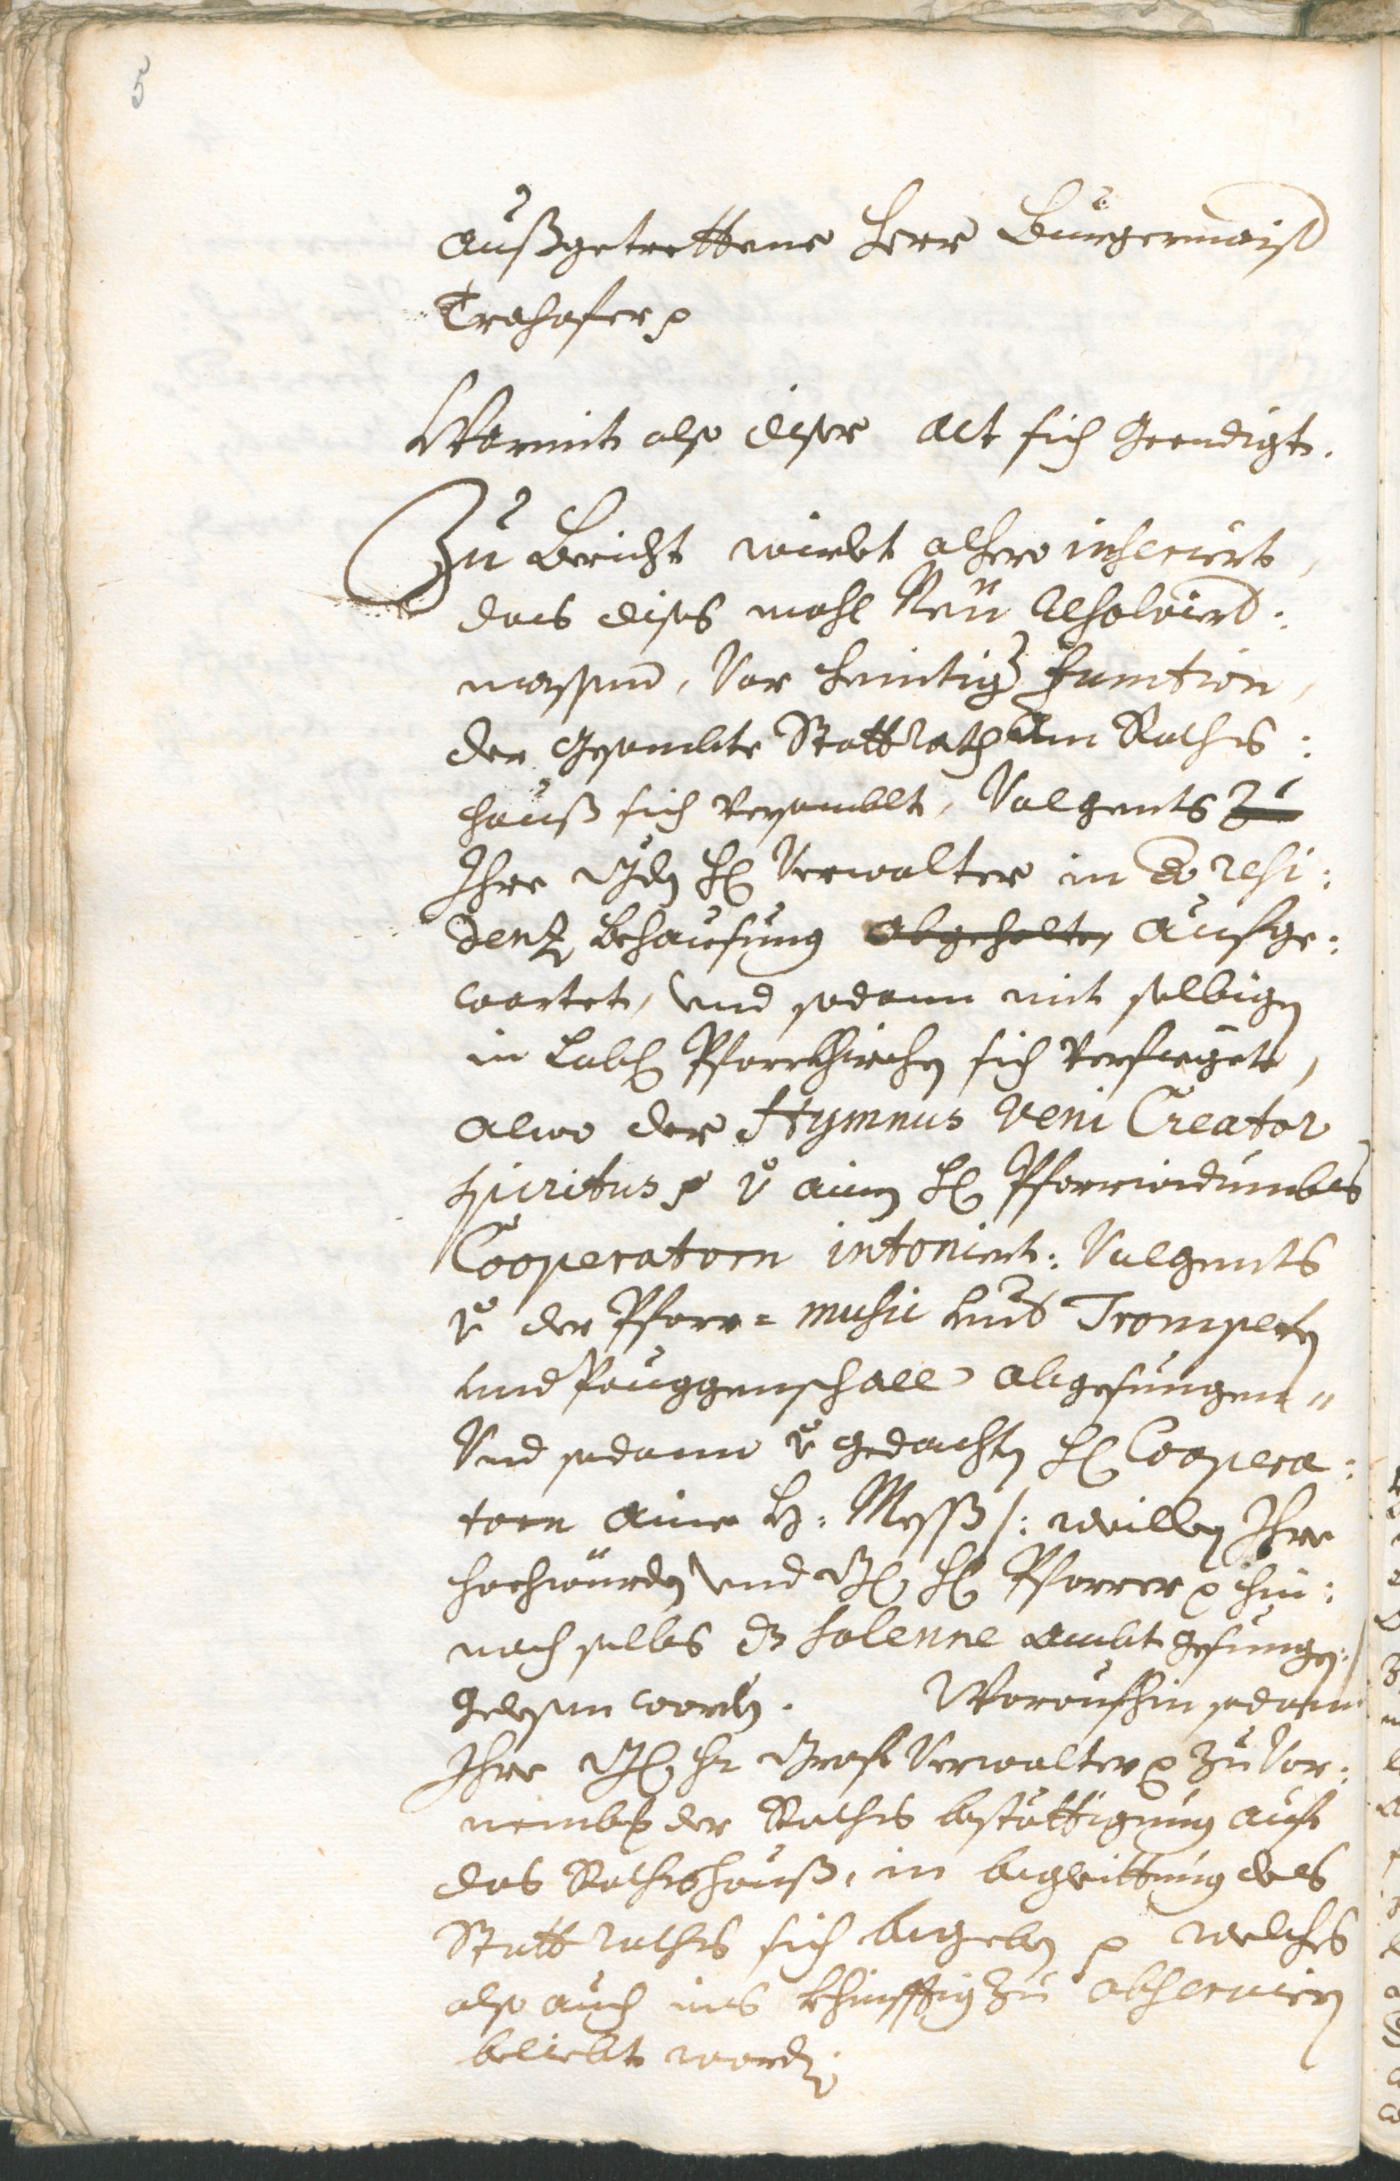 5
außgetrettene Herr Burgermaist
Trahofer
Wormit also diser Act sich geendigt.
Zu Bericht wirdt alhero inseriert,
das dises mahl Neu resolviert:
massen, Vor heintiger function,
der gesambte Stattrath am Rathß:
hauß sich versamblt, Volgents zu
Ihro Gdn H Verwalter in resi:
denz Behausung abgeholte aufge:
wartet, und sodann mit selbigen
in Lobl Pfarrkhirchen sich verfieget,
alwo der Hymnus Veni Creator
spiritus v ainem H Pfarrwidumbs
Cooperatorn intoniert: Volgents
v der Pfarr= music und Trompeten
und Pauggenschall abgesungen"
Und sodann v gedachten H Coopera:
torn aine H: Mess /: weillen Ihro
hochwürden und H Pfarrer hin:
nach selbs solenne Ambt gesungen:/
gelesen worden. Woraufhin sodann
Ihro Hr Graf Verwalter zu Vor:
nembung der Raths bestättigung auf
das Rathshauß, in beglaittung des
Statt Raths sich begeben welches
also auch ins khinfftig zu observieren
beliebt worden.